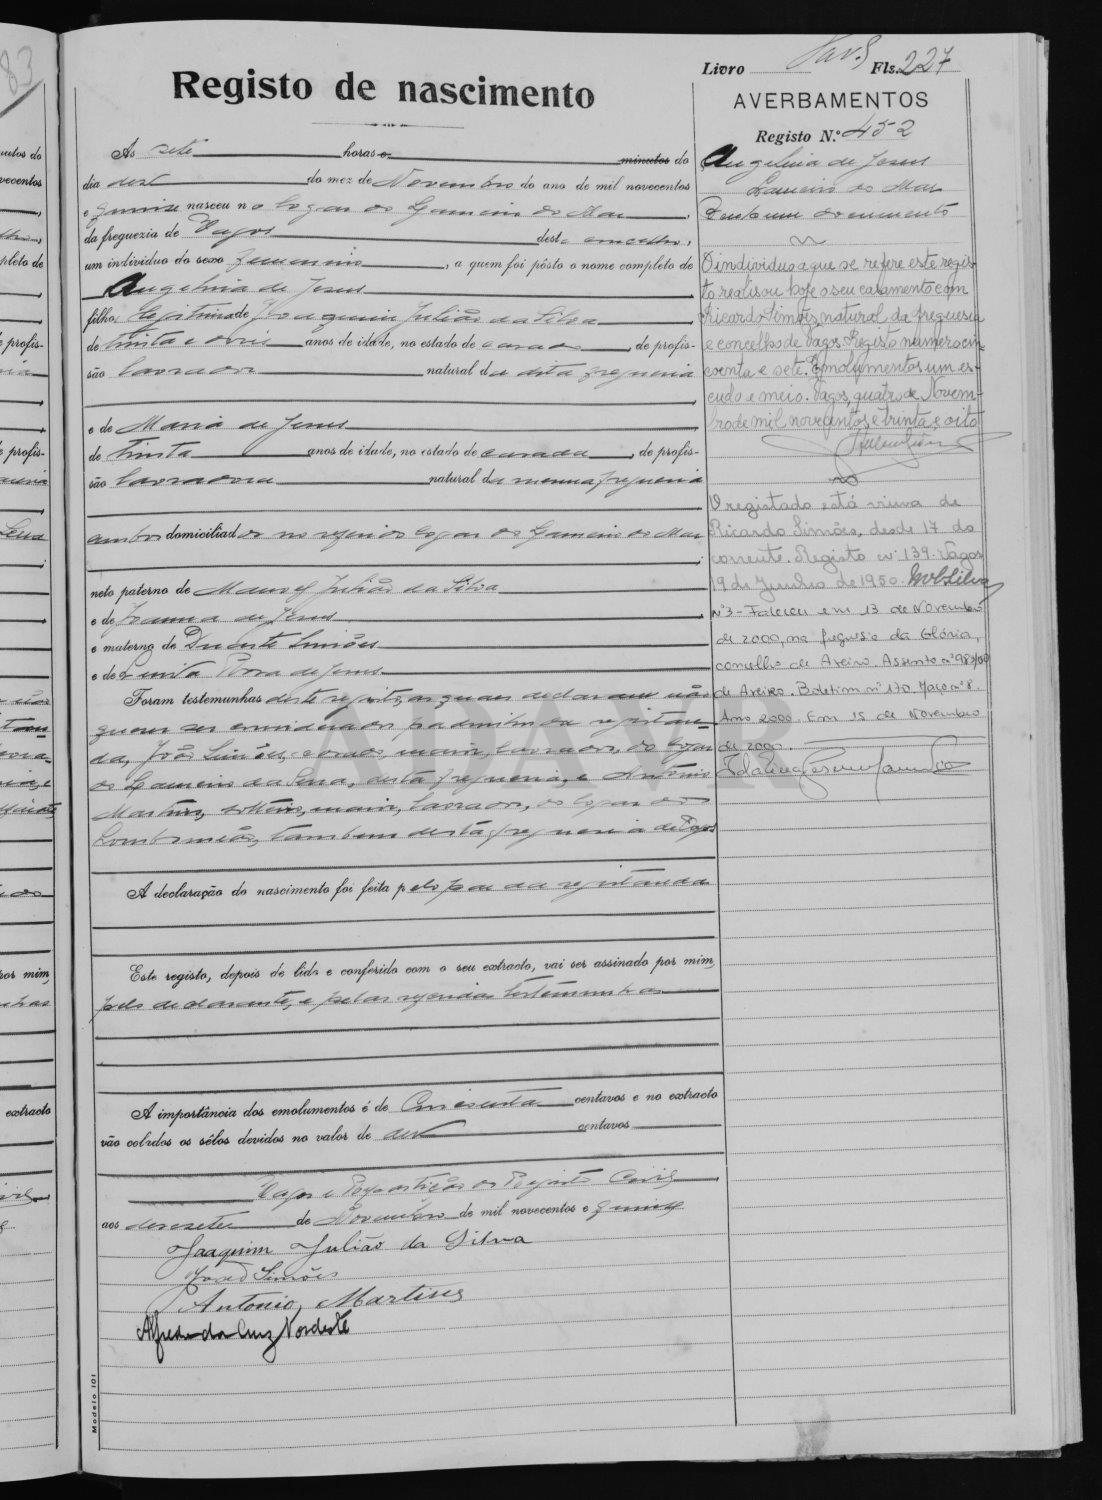 83
Livro Fls. 227
Registo de nascimento
AVERBAMENTOS
Registo N.º 452
Ás sete horas e minutos do
dia dez do mez de Novembro do ano de mil novecentos
e quinze nasceu no logar do Gameiro do Mar,
da freguezia de Vagos deste concelho,
um individuo do sexo femenino, a quem foi pôsto o nome completo de
Angelina de Jesus
filho legitima de Joaquim Julião da Silva
de trinta e anos de idade, no estado de casado, de profis-
são lavrador natural da dita freguesia
e de Maria de Jesus
de trinta anos de idade, no estado de casada, de profis-
são lavradora natural da mesma freguesia
ambos domiciliados no referido logar do Gameiro do Mar
neto paterno de Manuel Julião da Silva
e de Joanna de Jesus
e materno de Duarte Simões
e de Rosa de Jesus
Foram testemunhas deste registo, as quaes declararam não
querer ser considerados padrinhos da registan-
da, João Simões, casado, maior, lavrador, do logar
do Gameiro da Serra, desta freguesia, e António
Martins, solteiro, maior, lavrador, do logar de
Lombomeão, tambem desta freguesia de Vagos
A declaração do nascimento foi feita pelo pae da registanda
Este registo, depois de lido e conferido com o seu extracto, vai ser assinado por mim,
pelo declarante, e pelas referidas testemunhas
A importância dos emolumentos é de Cincoenta centavos e no extracto
vão colados os sêlos devidos no valor de dez centavos
Vagos e Repartição do Registo Civil
aos dezesete de Novembro de mil novecentos e quinze
Joaquim Julião da Silva
João Simões
Antonio Martins
Alfredo da Cruz Nordeste
Modelo 101
Angelina de Jesus
Gameiro do Mar
O individuo a que se refere este regis-
to realisou hoje o seu casamento com
Ricardo Simões, natural da freguesia
e concelho de Vagos. Registo numero cin-
coenta e sete. Emolumentos um es-
cudo e meio. Vagos, quatro de Novem-
bro de mil novecentos e trinta e oito
O registado está viuva de
Ricardo Simões, desde 17 do
corrente. Registo nº 139. Vagos,
19 de Junho de 1950.
Nº3 - Faleceu em 13 de Novembro
de 2000, na freguesia da Glória,
concelho de Aveiro. Assento nº 989/00
de Aveiro. Boletim nº 170. Maço nº 8.
Ano 2000. Em 15 de Novembro
de 2000.
ADAVR